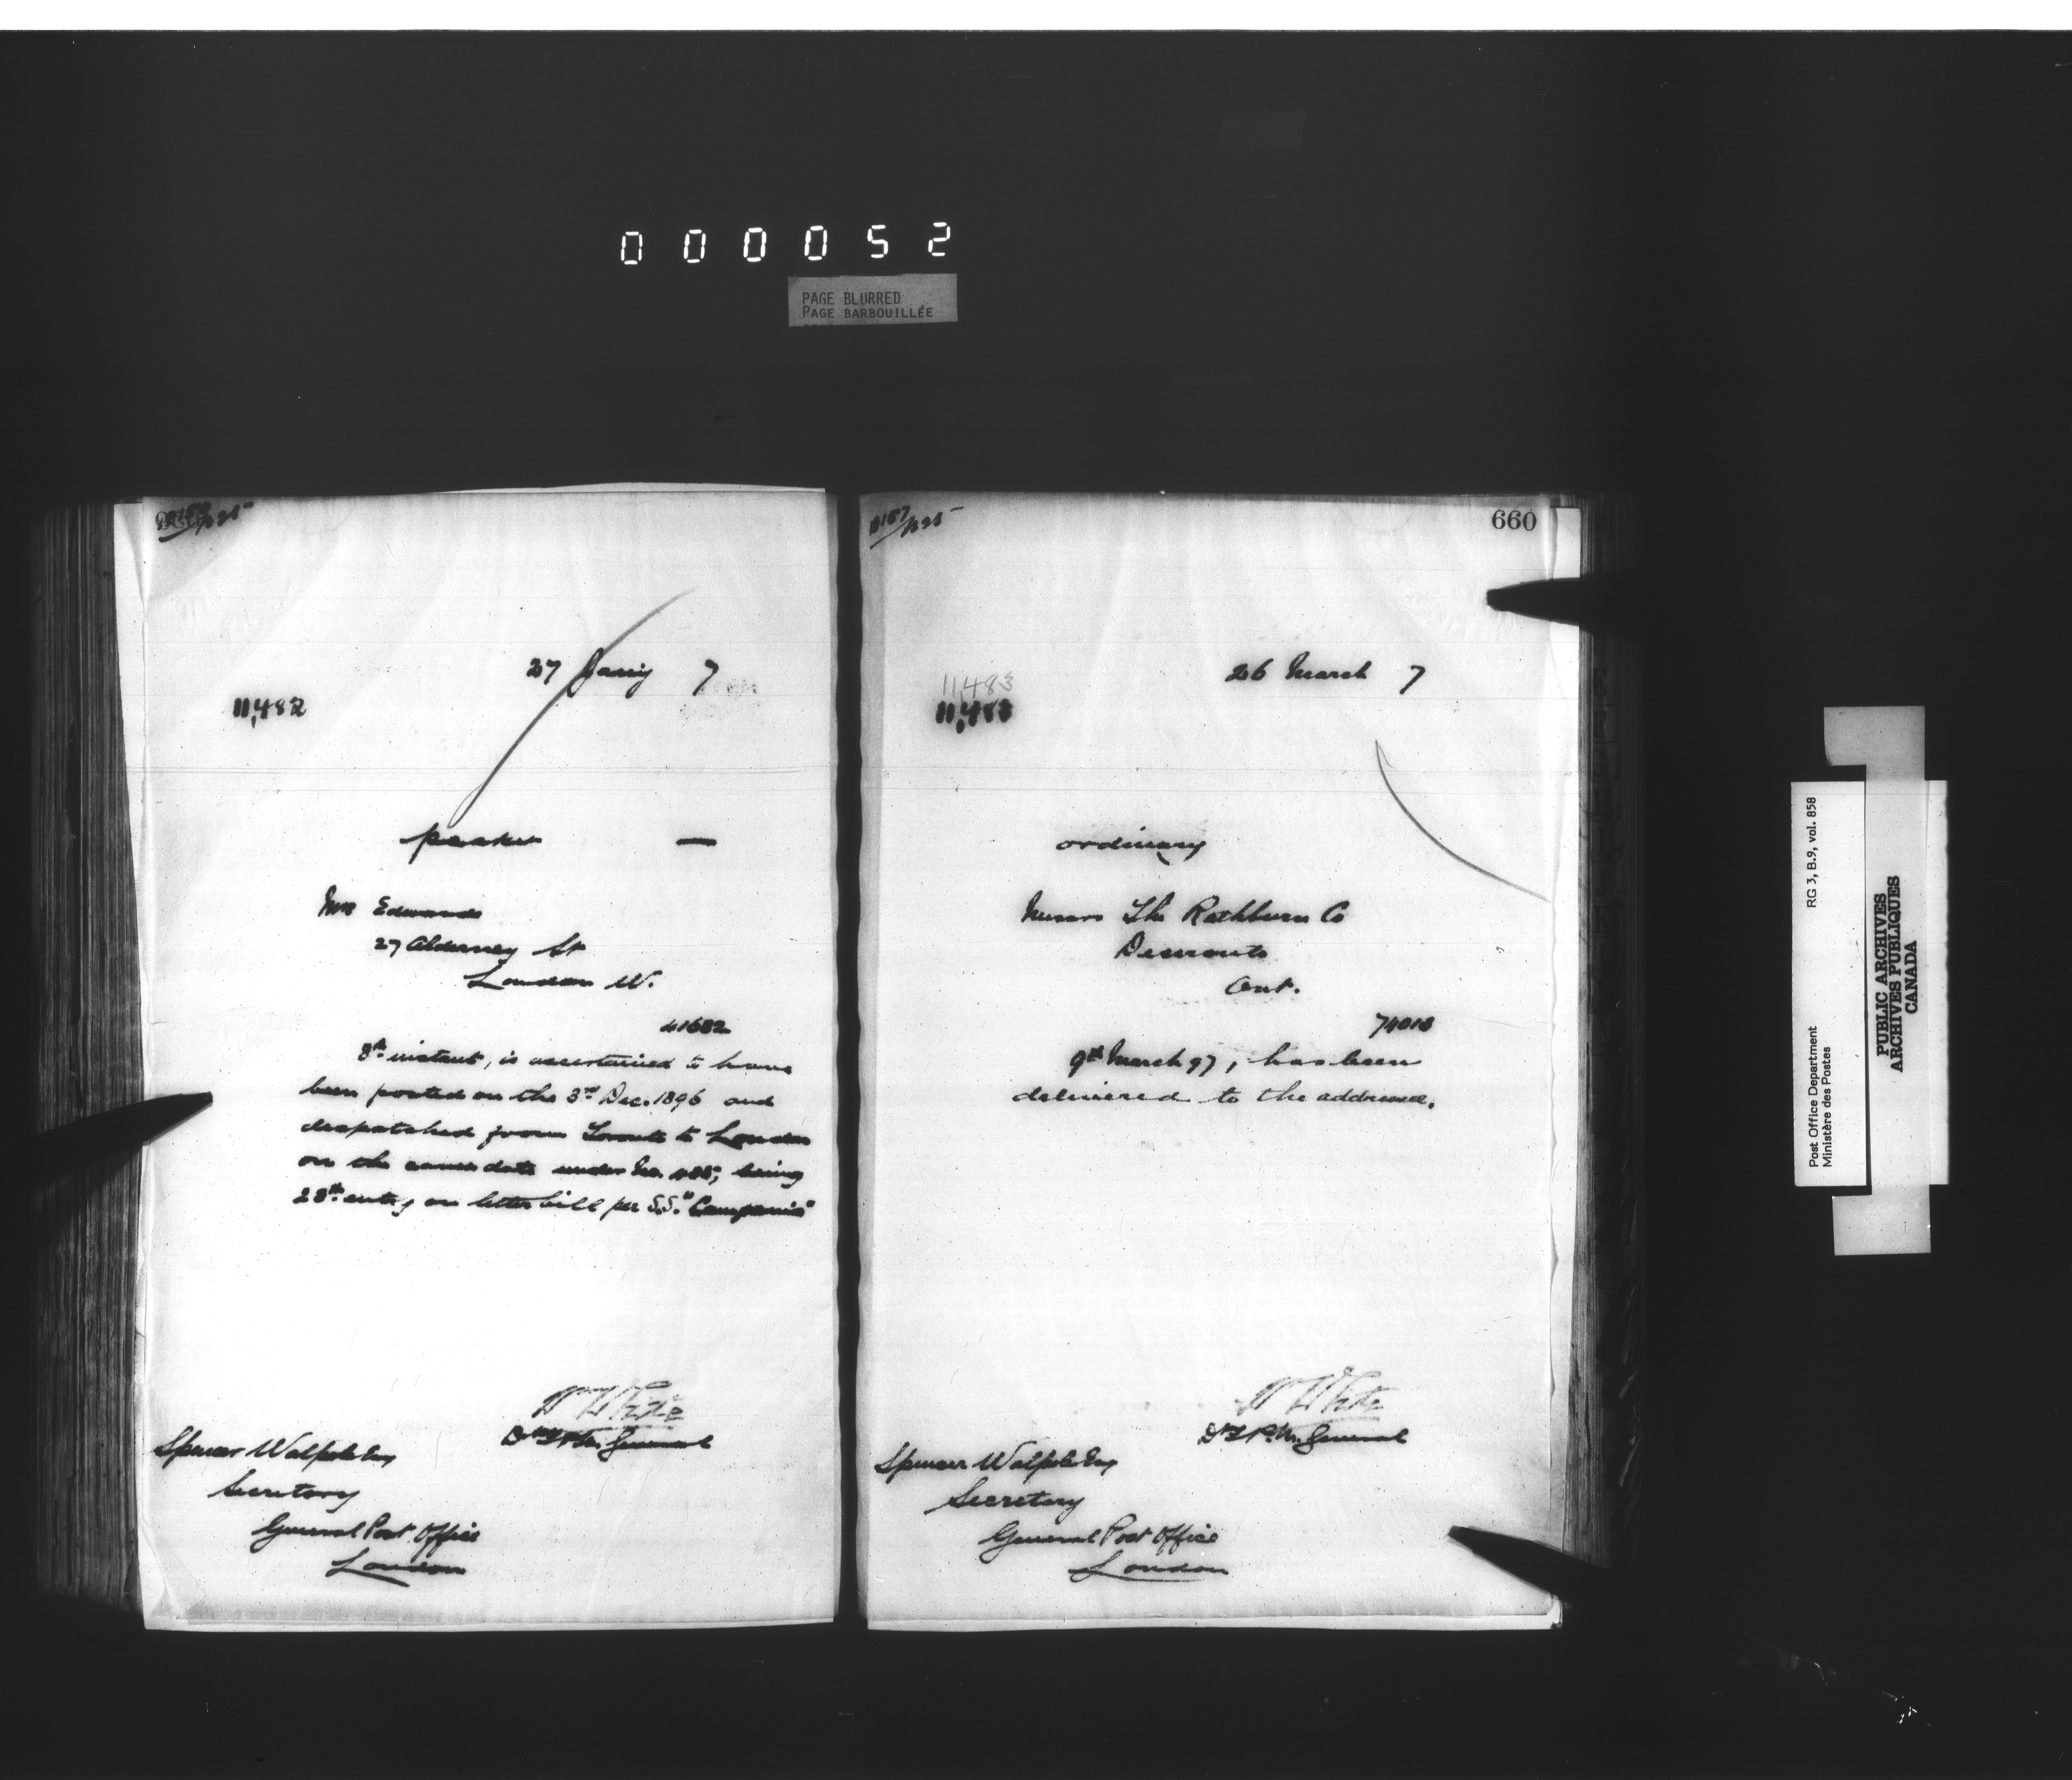 000052
PAGE BLURRED
PAGE BARBOUILLÉE
27 Jany 7
11,482
packet —
Mrs Edwards
27 Alderney St
London W.
41682
8th instant, is ascertained to have
been posted on the 3rd Dec. 1896 and
despatched from Toronto to London
on the same date under No. being
28th entry on letter bill per S.S. "Campania"
Wm White
Dy P.M. General
Spencer Walpole Esq
Secretary
General Post Office
London
660
26 March 7
11,483
11,483
ordinary
Messrs The Rathbun Co
Deseronto
Ont.
74018
9th March 97, has been
delivered to the addressee.
Wm White
Dy P.M. General
Spencer Walpole Esq
Secretary
General Post Office
London
Post Office Department
Ministère des Postes
RG 3, B.9, vol. 858
PUBLIC ARCHIVES
ARCHIVES PUBLIQUES
CANADA